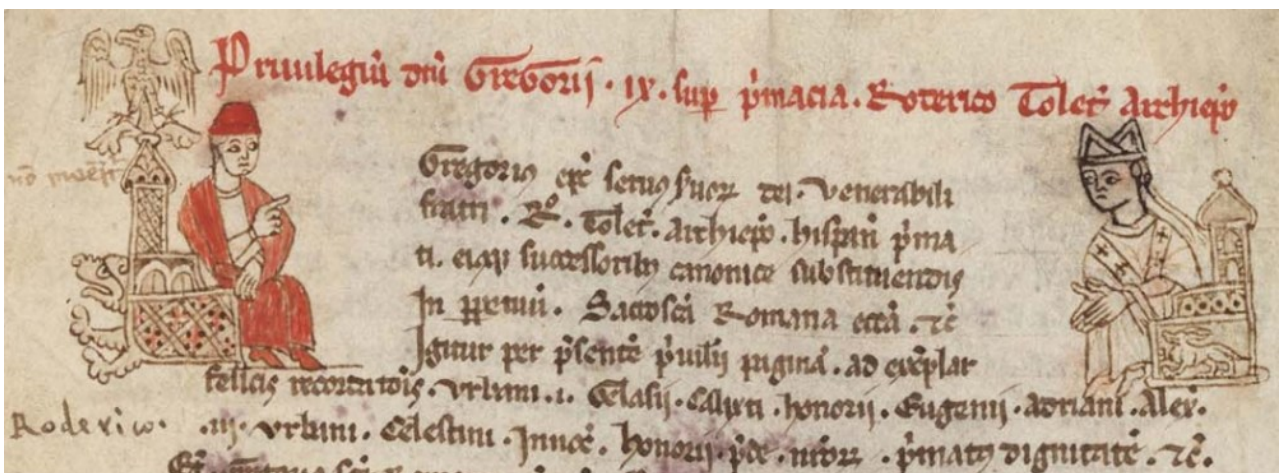 Priuilegiū dnī Gregorii · ix · sup p̄macia · Roderico Tolet̄ Archiep̄o
Gregorius ep̄c seruus seruor̄ dei · Venerabili
fratri · R̊ · Tolet̄ · archiep̄o · hispan̄ p̄ma
ti · eiusq successoribȝ canonice substituendis
In ppetuū · Sacrosc̄a Romana ecc̄a · ⁊c̄
Igitur per p̄sentē p̄uil̄ii paginā · ad exēplar
felicis recordatiōis · Vrbani · i · Gelasii · Calixti · honorii · Eugenii · adriani · Alex̄ ·
Roderico ·
· iii · vrbani · Celestini · Innoc̄ · honorii · p̄dc̄ · nr̄or̄ · p̄matus dignitatē · ⁊c̄ ·